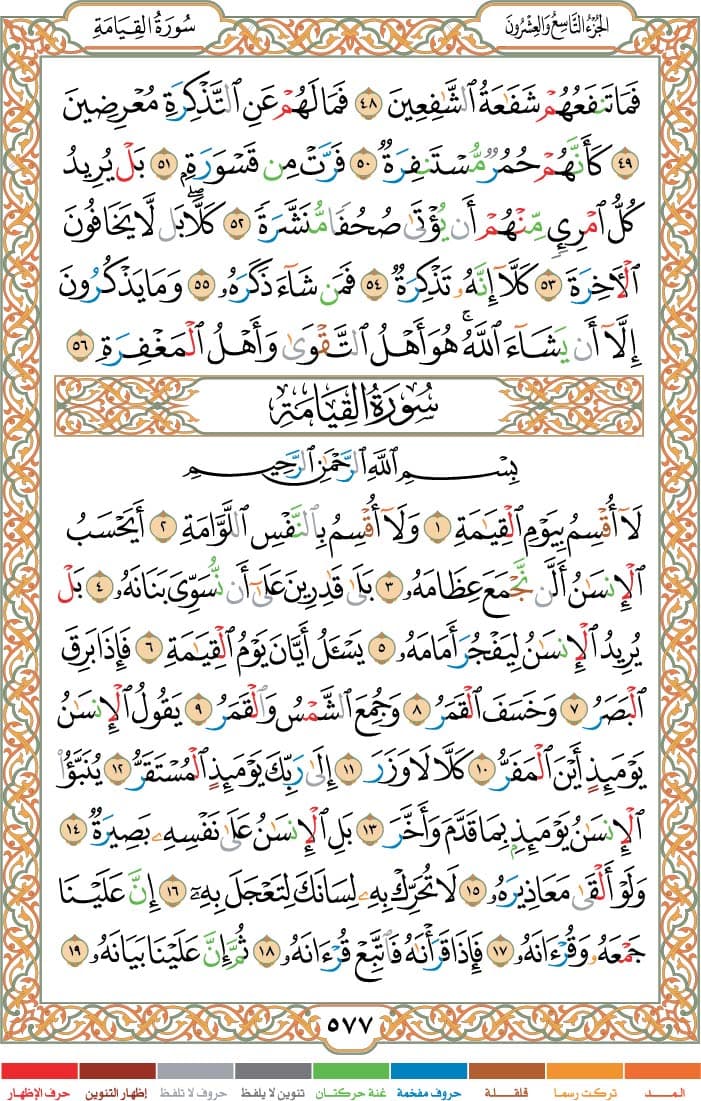 الجزء التاسع والعشرون
سورة القيامة
فَمَا تَنفَعُهُمْ شَفَٰعَةُ ٱلشَّٰفِعِينَ ٤٨ فَمَا لَهُمْ عَنِ ٱلتَّذْكِرَةِ مُعْرِضِينَ
٤٩ كَأَنَّهُمْ حُمُرٌ مُّسْتَنفِرَةٌ ٥٠ فَرَّتْ مِن قَسْوَرَةٍۭ ٥١ بَلْ يُرِيدُ
كُلُّ ٱمْرِئٍ مِّنْهُمْ أَن يُؤْتَىٰ صُحُفًا مُّنَشَّرَةً ٥٢ كَلَّا ۖ بَل لَّا يَخَافُونَ
ٱلْءَاخِرَةَ ٥٣ كَلَّآ إِنَّهُۥ تَذْكِرَةٌ ٥٤ فَمَن شَآءَ ذَكَرَهُۥ ٥٥ وَمَا يَذْكُرُونَ
إِلَّآ أَن يَشَآءَ ٱللَّهُ ۚ هُوَ أَهْلُ ٱلتَّقْوَىٰ وَأَهْلُ ٱلْمَغْفِرَةِ ٥٦
سورة القيامة
بِسْمِ ٱللَّهِ ٱلرَّحْمَٰنِ ٱلرَّحِيمِ
لَآ أُقْسِمُ بِيَوْمِ ٱلْقِيَٰمَةِ ١ وَلَآ أُقْسِمُ بِٱلنَّفْسِ ٱللَّوَّامَةِ ٢ أَيَحْسَبُ
ٱلْإِنسَٰنُ أَلَّن نَّجْمَعَ عِظَامَهُۥ ٣ بَلَىٰ قَٰدِرِينَ عَلَىٰٓ أَن نُّسَوِّىَ بَنَانَهُۥ ٤ بَلْ
يُرِيدُ ٱلْإِنسَٰنُ لِيَفْجُرَ أَمَامَهُۥ ٥ يَسْـَٔلُ أَيَّانَ يَوْمُ ٱلْقِيَٰمَةِ ٦ فَإِذَا بَرِقَ
ٱلْبَصَرُ ٧ وَخَسَفَ ٱلْقَمَرُ ٨ وَجُمِعَ ٱلشَّمْسُ وَٱلْقَمَرُ ٩ يَقُولُ ٱلْإِنسَٰنُ
يَوْمَئِذٍ أَيْنَ ٱلْمَفَرُّ ١٠ كَلَّا لَا وَزَرَ ١١ إِلَىٰ رَبِّكَ يَوْمَئِذٍ ٱلْمُسْتَقَرُّ ١٢ يُنَبَّؤُا۟
ٱلْإِنسَٰنُ يَوْمَئِذٍۭ بِمَا قَدَّمَ وَأَخَّرَ ١٣ بَلِ ٱلْإِنسَٰنُ عَلَىٰ نَفْسِهِۦ بَصِيرَةٌ ١٤
وَلَوْ أَلْقَىٰ مَعَاذِيرَهُۥ ١٥ لَا تُحَرِّكْ بِهِۦ لِسَانَكَ لِتَعْجَلَ بِهِۦٓ ١٦ إِنَّ عَلَيْنَا
جَمْعَهُۥ وَقُرْءَانَهُۥ ١٧ فَإِذَا قَرَأْنَٰهُ فَٱتَّبِعْ قُرْءَانَهُۥ ١٨ ثُمَّ إِنَّ عَلَيْنَا بَيَانَهُۥ ١٩
٥٧٧
المــد تركت رسما قلقلة حروف مفخمة غنة حركتان تنوين لا يلفظ حروف لا تلفظ إظهار التنوين حرف الإظهار